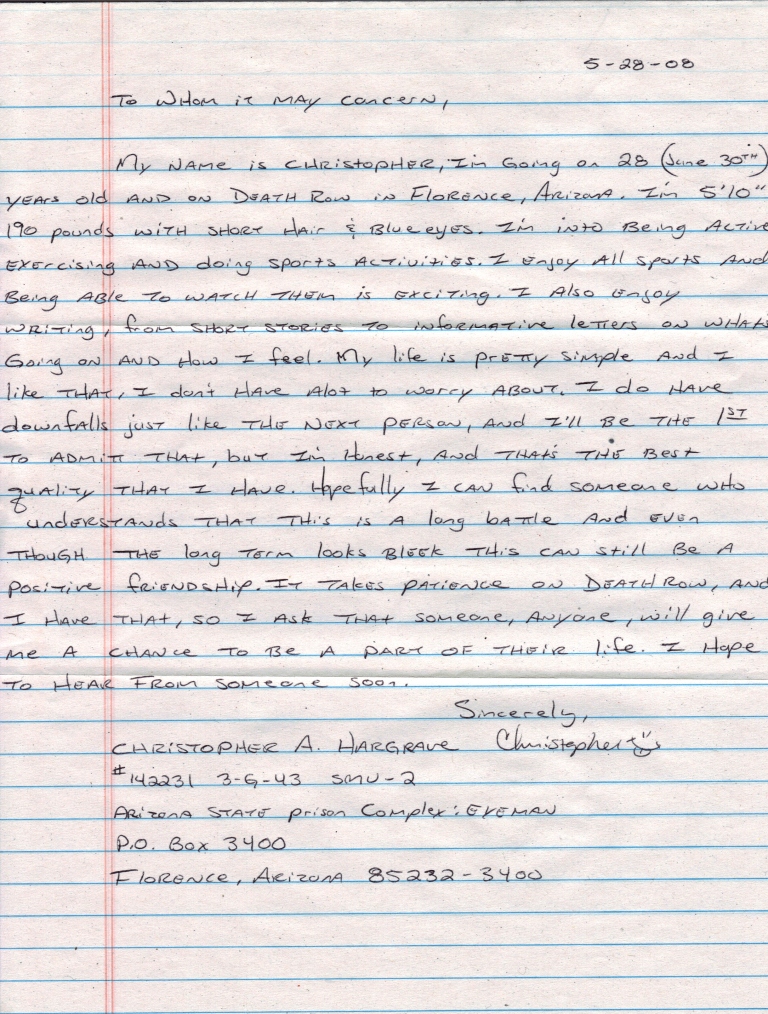 5-28-08
To Whom it may concern,
My name is Christopher, I'm going on 28 (June 30TH)
years old and on Death Row in Florence, Arizona. I'm 5'10"
190 pounds with short hair & Blue eyes. I'm into Being Active
exercising and doing sports activities. I enjoy all sports and
Being able to watch them is exciting. I also enjoy
writing, from short stories to informative letters on whats
going on and how I feel. My life is pretty simple and I
like that, I don't have alot to worry about. I do have
downfalls just like the next person, and I'll be the 1ST
to admit that, but I'm Honest, and that's the Best
quality that I have. Hopefully I can find someone who
understands that this is a long battle and even
though the long term looks bleek this can still be a
positive friendship. It takes patience on Death Row, and
I have that, so I ask that someone, anyone, will give
me a chance to be a part of their life. I Hope
to hear from someone soon.
Sincerely,
Christopher A. Hargrave Christopher
#142231 3-G-43 SMU-2
Arizona State prison Complex: Eyeman
P.O. Box 3400
Florence, Arizona 85232-3400